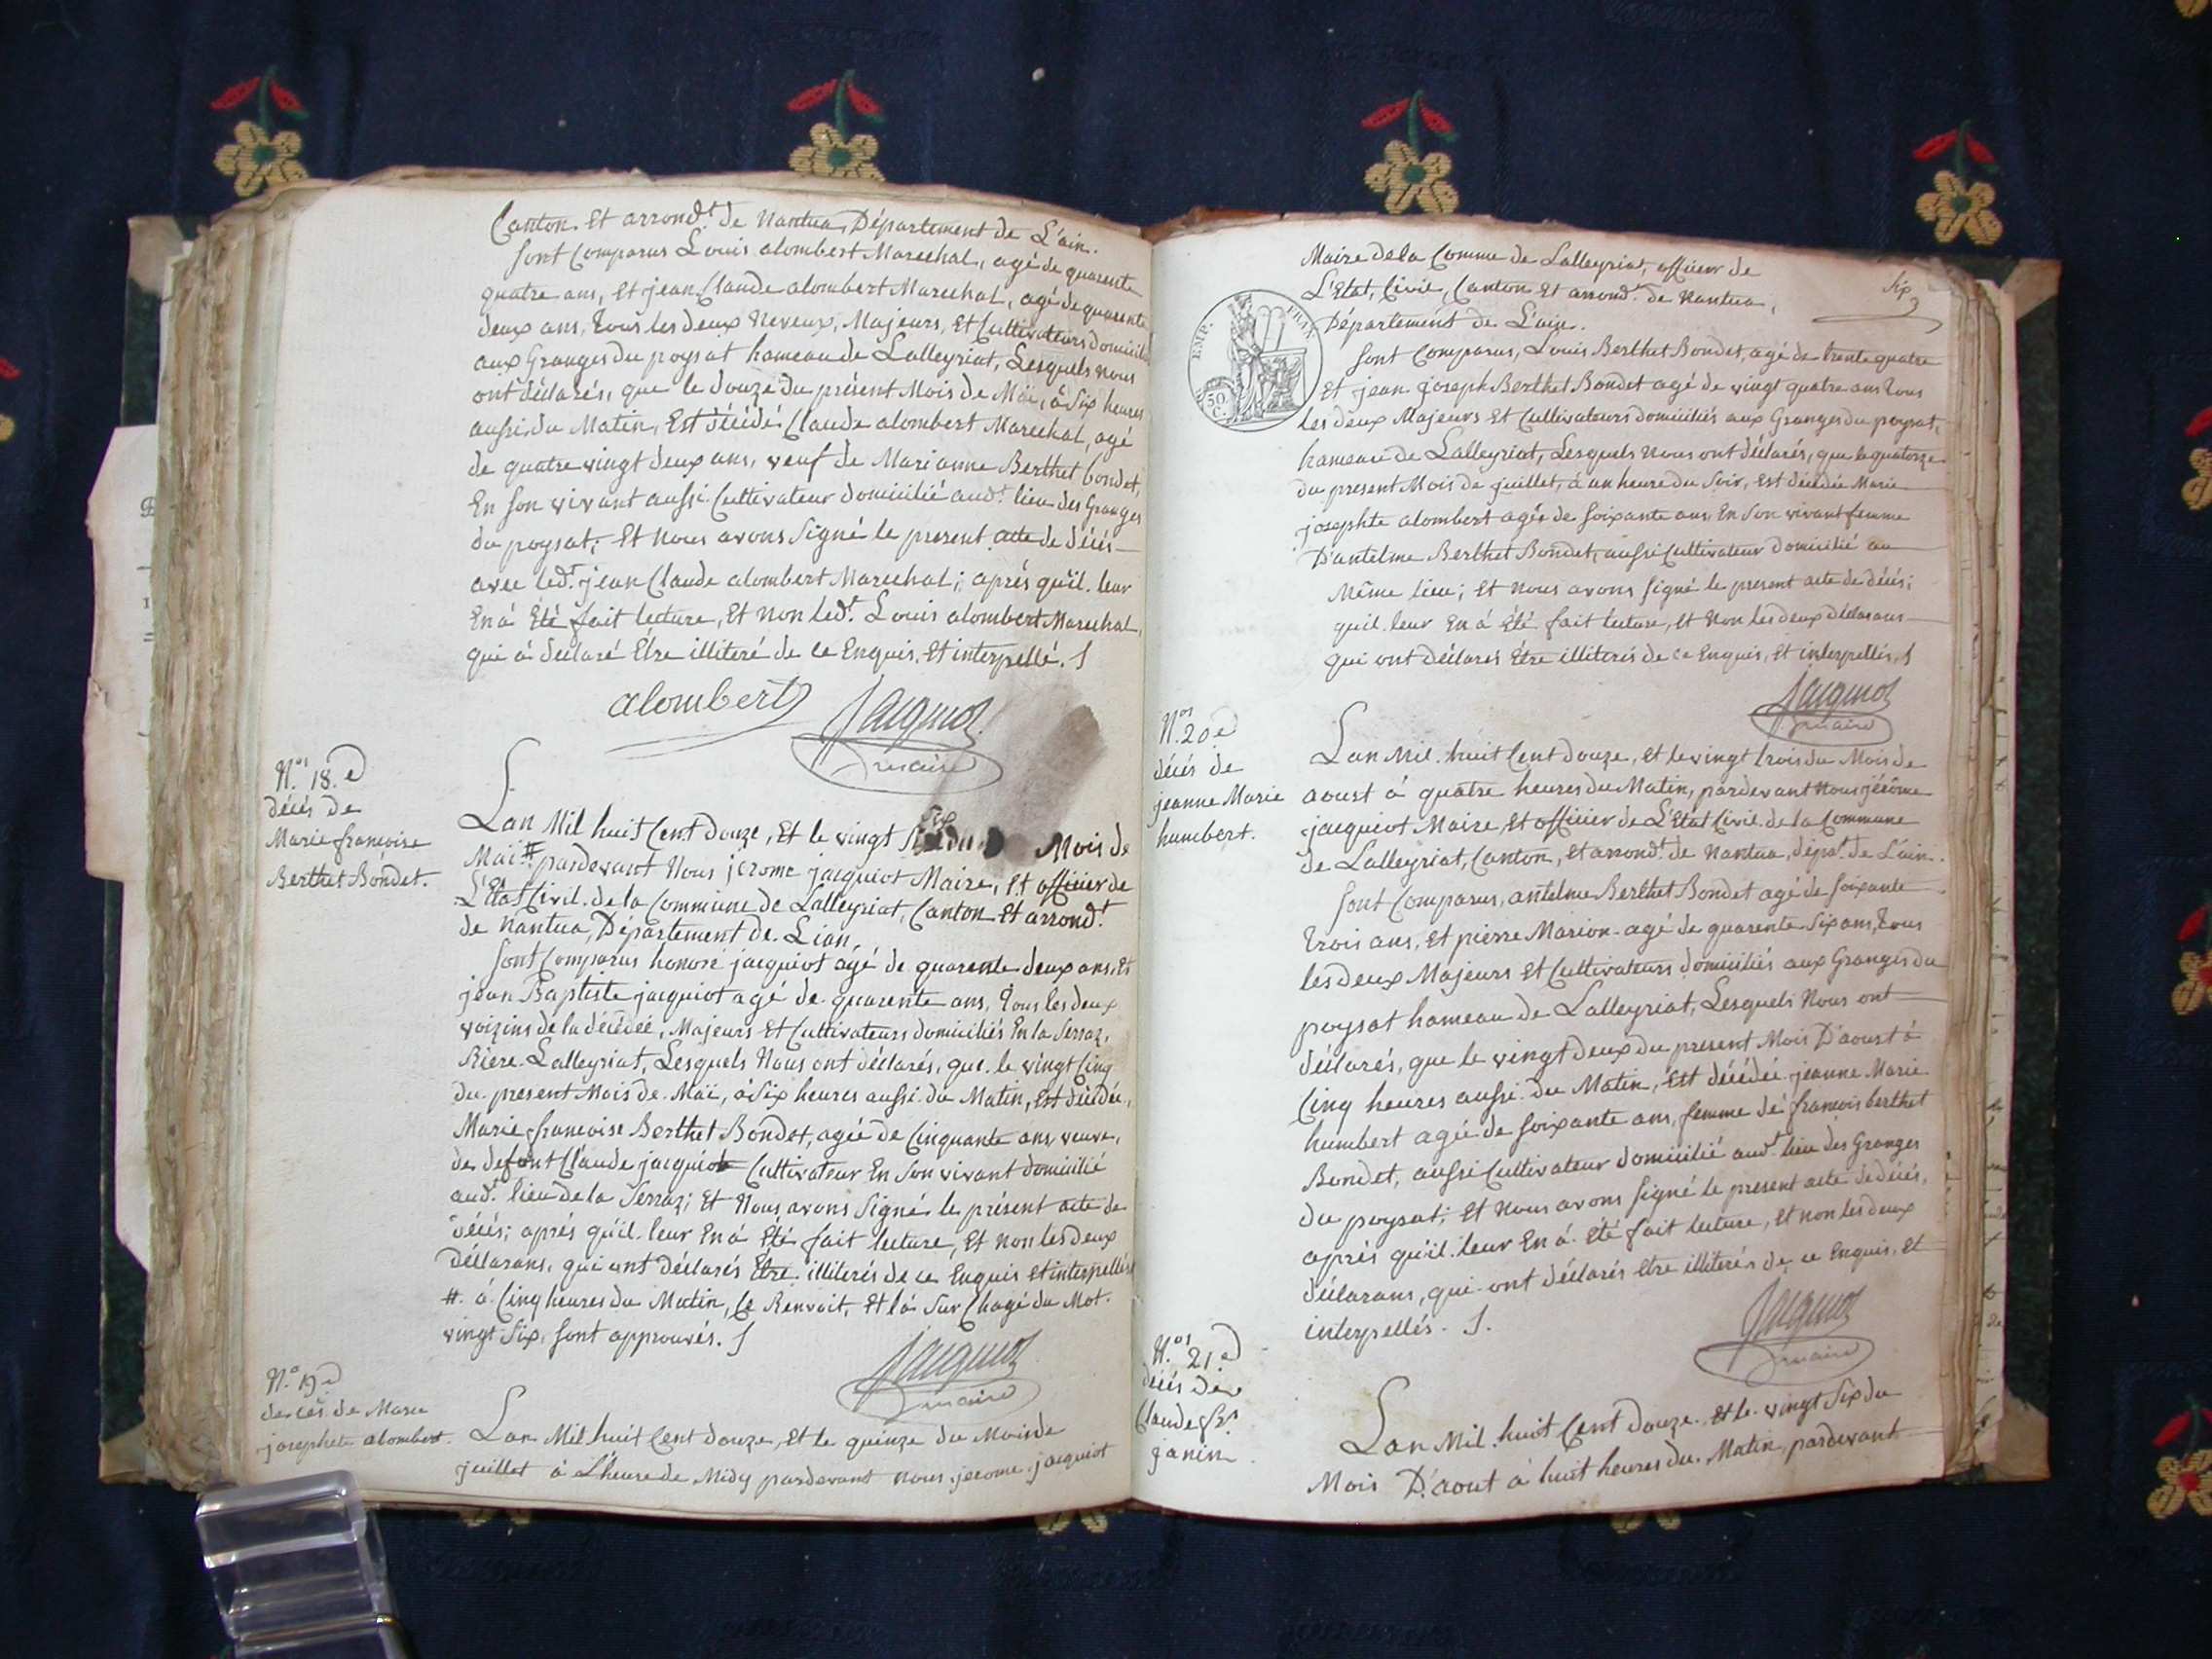 Canton. Et arrond.t de Nantua, Département de L'ain.
sont Comparus Louis alombert Marechal, agé de quarente
quatre ans, Et jean Claude alombert Marechal, agé de quarente
deux ans, tous les deux Neveux, Majeurs, Et Cultivateurs domiciliés
aux Granges du poysat hameau de Lalleyriat, Lesquels nous
ont déclarés, que le douze du présent Mois de Maï, à six heures
aussi du Matin, Est décédé Claude alombert Marechal, agé
de quatre vingt deux ans, veuf de Marianne Berthet bondet,
En son vivant aussi Cultivateur domicilié aud.t lieu des Granges
du poysat; Et Nous avons signé le present acte de décés
avec led.t jean Claude alombert Marechal; aprés qu'il leur
En á Eté fait lecture, Et non led.t Louis alombert Marechal,
qui à declaré Etre illiteré de ce Enquis, Et interpellé.
alombert Jacquiot
maire
N.o 18.e
décés de
Marie francoise
Berthet Bondet.
Lan Mil huit Cent douze, Et le vingt six du Mois de
Maï # pardevant Nous jerome jacquiot Maire, Et officier de
L'Etat Civil de la Commune de Lalleyriat, Canton Et arrond.t
de Nantua, Département de Lian,
sont Comparus honoré jacquiot agé de quarente deux ans, Et
jean Baptiste jacquiot agé de quarente ans, tous les deux
voizins de la décédeé, Majeurs Et Cultivateurs domiciliés En la Serraz,
Riere Lalleyriat, Lesquels Nous ont déclarés, que le vingt Cinq
du present Mois de Maï, à six heures aussi du Matin, Est décédée,
Marie francoise Berthet Bondet, agée de Cinquante ans, veuve,
de defont Claude jacquiot Cultivateur En son vivant domicilié
aud.t lieu de la Serraz; Et Nous avons Signé le présent acte de
décés; aprés qu'il leur En á Eté fait lecture, Et non les deux
Déclarans, qui ont Déclarés Etre illiterés de ce Enquis Et interpellés
# á Cinq heures du Matin, Le Renvoit, Et lá sur Chagé du Mot.
vingt Six, sont approuvés.
Jacquiot
maire
N.o 19.e
de ces de Marie
josephete alombert.
Lan Mil huit Cent douze, Et le quinze du Mois de
juillet à L'heure de Midy pardevant nous jerome jacquiot
six
Maire de la Comune de Lalleyriat, officier de
L'Etat Civil, Canton Et arrond.t de Nantua,
Département de L'ain.
EMP. FRAN.
50 C.
sont Comparus, Louis Berthet Bondet, agé de trente quatre
Et jean joseph Berthet Bondet agé de vingt quatre ans tous
les deux Majeurs Et Cultivateurs domiciliés aux Granges du poysat,
hameau de Lalleyriat, Lesquels Nous ont déclarés, que le quatorze
du present Mois de juillet, à un heure du Soir, Est décédée Marie
josephte alombert agée de soixante ans, En son vivant femme
D'antelme Berthet Bondet, aussi Cultivateur domicilié au
Même lieu; Et Nous avons signé le present acte de décés;
qu'il leur En á Eté fait lecture, Et Non les deux déclarans
qui ont déclarés Etre illiterés de ce Enquis, Et interpellés,
Jacquiot
maire
N.os 20.e
décés de
jeanne Marie
humbert.
Lan Mil huit Cent douze, Et le vingt trois du Mois de
aoust à quatre heures du Matin, pardevant Nous jérôme
jacquiot Maire Et officier de L'Etat Civil de la Commune
de Lalleyriat, Canton, Et arrond.t de Nantua, dépa.t de L'ain.
sont Comparus, antelme Berthet Bondet agé de soixante
trois ans, Et pierre Marion agé de quarente six ans, tous
les deux Majeurs Et Cultivateurs domiciliés aux Granges du
poysat hameau de Lalleyriat, Lesquels Nous ont
déclarés, que le vingt deux du present Mois D'aoust à
Cinq heures aussi du Matin, Est décédée jeanne Marie
humbert agée de soixante ans, femme dé francois berthet
Bondet, aussi Cultivateur domicilié aud.t lieu des Granges
du poysat; Et Nous avons signé le present acte de décés,
aprés qu'il leur En á Eté fait lecture, Et non les deux
déclarans, qui ont déclarés Etre illiterés de ce Enquis, Et
interpellés.
Jacquiot
maire
N.os 21.e
décés de
Claude fr.s
janin
Lan Mil huit Cent douze Et le vingt six du
Mois D'aout á huit heures du Matin, pardevant